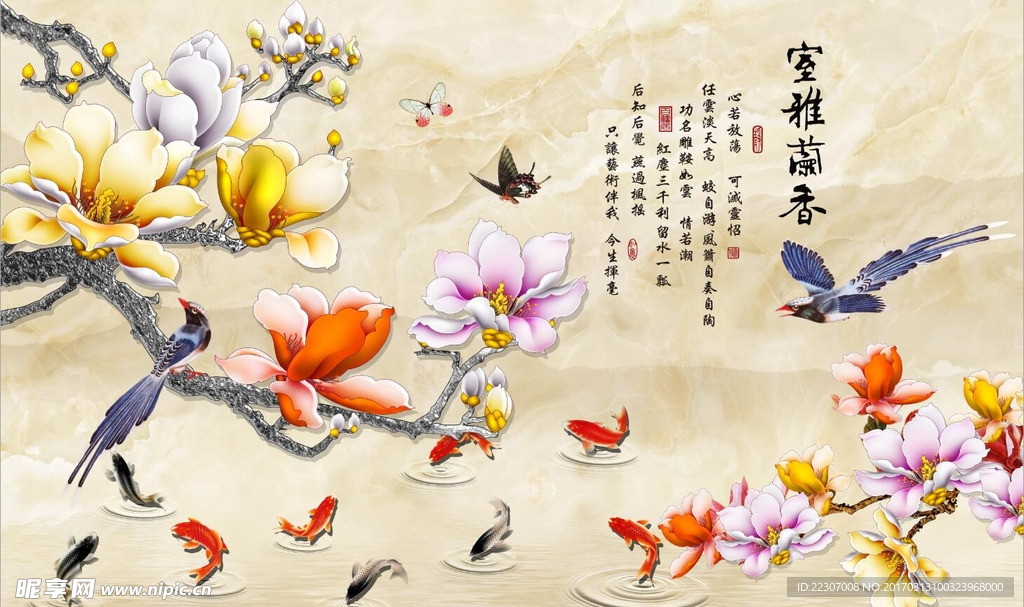 室雅蘭香
心若放蕩 可滅靈怊
任雲淡天高 蛟自游風簫自奏自陶
功名雕鞍如雲 情若潮
紅塵三千利留水一瓢
后知后覺 燕過楓摇
只讓藝術伴我 今生揮毫
昵享网 www.nipic.cn
ID:22307008 NO:20170313100323968000